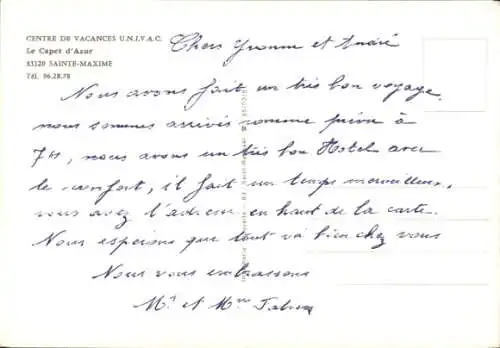 CENTRE DE VACANCES U.N.I.V.A.C.
Le Capet d'Azur
83120 SAINTE-MAXIME
Tél. 96.28.78
Chers Yvonne et André
Nous avons fait un très bon voyage,
nous sommes arrivés comme prévu à
7H, nous avons un très bon Hotel avec
le confort, il fait un temps merveilleux,
vous avez l'adresse en haut de la carte.
Nous espérons que tout va bien chez vous
Nous vous embrassons
Mr et Mme